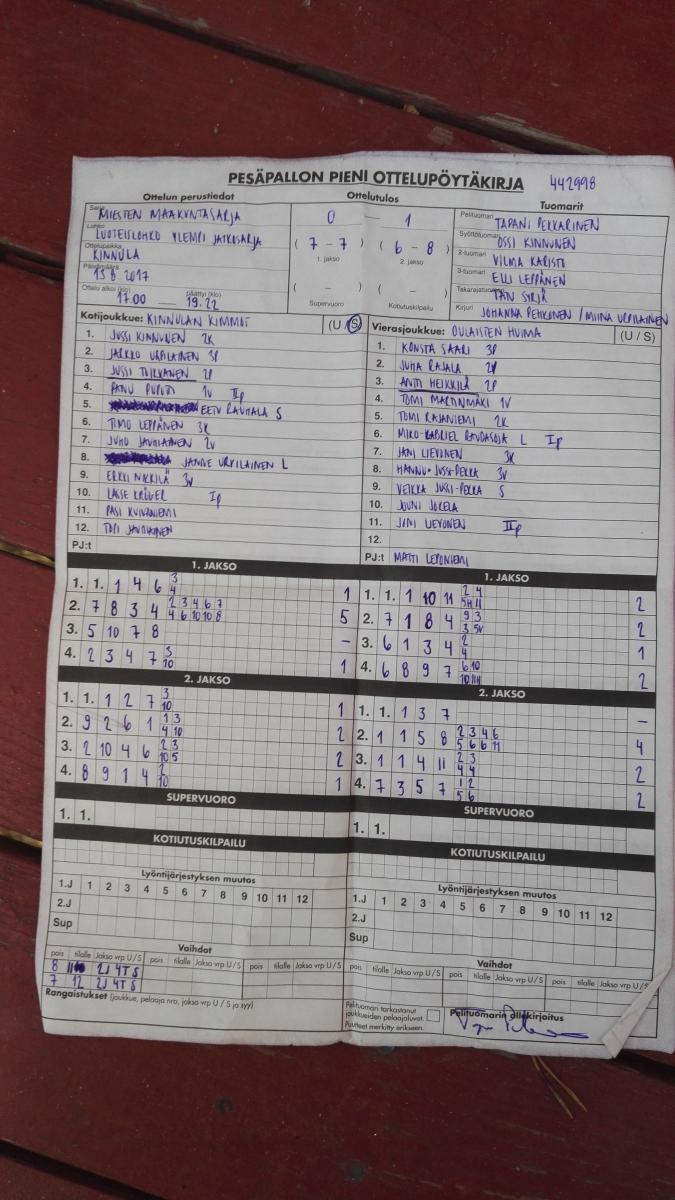 PESÄPALLON PIENI OTTELUPÖYTÄKIRJA 442998
Ottelun perustiedot
Sarja MIESTEN MAAKUNTASARJA
Lohko LUOTEISLOHKO YLEMPI JATKOSARJA
Ottelupaikka KINNULA
Päivämäärä 13.8.2017
Ottelu alkoi (klo) 17.00 — päättyi (klo) 19.22
Ottelutulos
0 — 1
( 7 - 7 ) ( 6 - 8 )
1. jakso 2. jakso
( - ) ( - )
Supervuoro Kotiutuskilpailu
Tuomarit
Pelituomari TAPANI PEKKARINEN
Syöttötuomari OSSI KINNUNEN
2-tuomari VILMA KARISTO
3-tuomari ELLI LEPPÄNEN
Takarajatuomari
Kirjuri JOHANNA PEHKONEN / MIINA URPILAINEN
Kotijoukkue: KINNULAN KIMMOT (U / S)
1. JUSSI KINNUNEN 2K
2. JARKKO URPILAINEN 3P
3. JUSSI TURKANEN 2P
4. PANU PUPUTI 1V IIp
5. EETU RAUHALA S
6. TIMO LEPPÄNEN 3K
7. JUHO JAUHIAINEN 2V
8. JANNE URPILAINEN L
9. ERKKI NIKKILÄ 3V
10. LASSE KRÖGER Ip
11. PASI KUIVANIEMI
12. TOPI JAUHIAINEN
PJ:t
Vierasjoukkue: OULAISTEN HUIMA (U / S)
1. KONSTA SAARI 3P
2. JUHA RAJALA 2V
3. ANTI HEIKKILÄ 2P
4. TOMI MARTINMÄKI 1V
5. TOMI RAJANIEMI 2K
6. MIKO-GABRIEL RAUDASOJA L Ip
7. JANI LIEVONEN 3K
8. HANNU JUSSI-PEKKA 3V
9. VEIKKA JUSSI-PEKKA S
10. JOUNI JOKELA
11. JONI LIEVONEN IIp
12.
PJ:t MATTI LEPONIEMI
1. JAKSO
1. 1. 1 4 6 3 1
4
2. 7 8 3 4 2 3 4 6 7 5
4 6 10 10 8
3. 5 10 7 8 –
4. 2 3 4 7 3 1
10
2. JAKSO
1. 1. 1 2 7 3 1
10
2. 9 2 6 1 1 3 2
4 10
3. 2 10 4 6 2 3 2
10 5
4. 8 9 1 4 2 1
10
SUPERVUORO
1. 1.
KOTIUTUSKILPAILU
Lyöntijärjestyksen muutos
1.J 1 2 3 4 5 6 7 8 9 10 11 12
2.J
Sup
Vaihdot
pois tilalle Jakso vrp U/S pois tilalle Jakso vrp U/S
8 2J 4T S
7 12 2J 4T S
Rangaistukset (joukkue, pelaaja nro, jakso vrp U / S ja syy)
1. JAKSO
1. 1. 1 10 11 2 4 2
2. 7 1 8 4 9 3 2
3. 6 1 3 4 2 1
4
4. 6 8 9 7 6 10 2
2. JAKSO
1. 1. 1 3 7 –
2. 1 1 5 8 2 3 4 6 4
5 6 6 11
3. 1 1 4 11 2 3 2
4 4
4. 7 3 5 7 1 2 2
5 6
SUPERVUORO
1. 1.
KOTIUTUSKILPAILU
Lyöntijärjestyksen muutos
1.J 1 2 3 4 5 6 7 8 9 10 11 12
2.J
Sup
Vaihdot
pois tilalle Jakso vrp U/S pois tilalle Jakso vrp U/S
Pelituomari tarkastanut
joukkueiden pelaajaluvat.
Puutteet merkitty erikseen.
Pelituomarin allekirjoitus